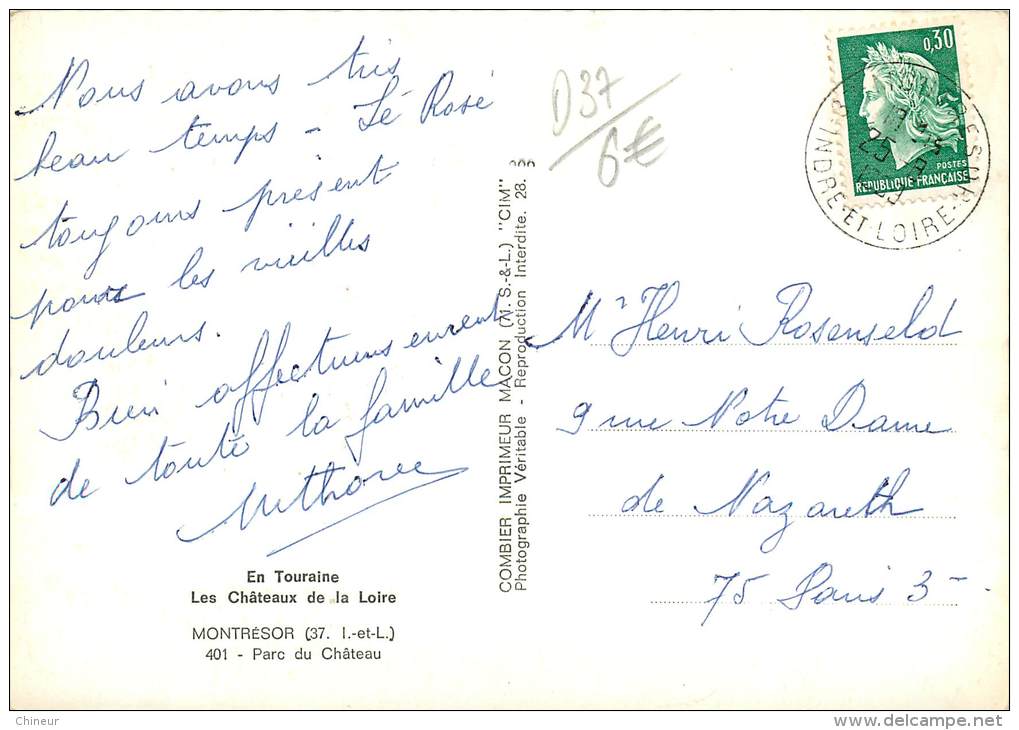 Nous avons très
beau temps - Le Rosé
toujours présent
pour les vieilles
douleurs.
Bien affectueusement
de toute la famille
En Touraine
Les Châteaux de la Loire
MONTRÉSOR (37. I.-et-L.)
401 - Parc du Château
COMBIER IMPRIMEUR MACON (71. S.-&-L.) "CIM"
Photographie Véritable - Reproduction Interdite. 28.
D37
6€
0,30
POSTES
REPUBLIQUE FRANÇAISE
INDRE-ET-LOIRE
Mr Henri Rosenseld
9 rue Notre Dame
de Nazareth
75 Paris 3
Chineur
delcampe.net